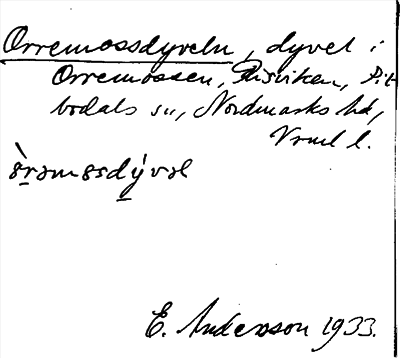 Orremossdyveln, dyvel i
Orremossen, Risviken, Sil-
bodals sn, Nordmarks hd,
Vrml l.
E. Andersson 1933.